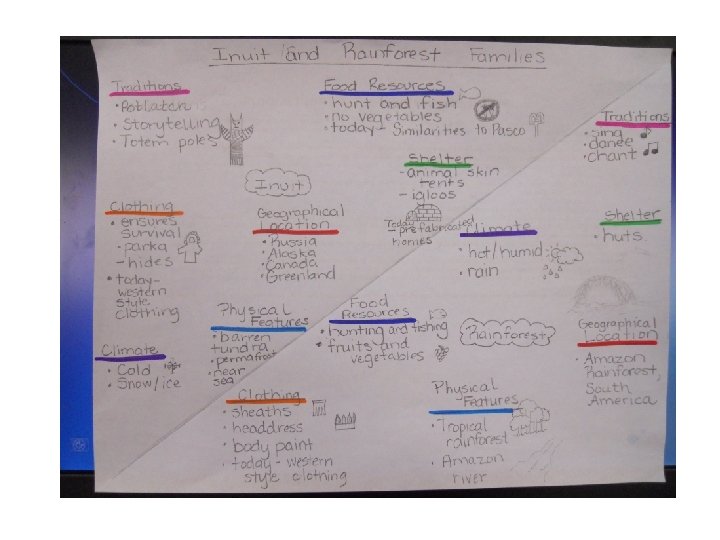 Inuit and Rainforest Families
Traditions
• Potlatch
• Storytelling
• Totem poles
Food Resources
• hunt and fish
• no vegetables
• today - Similarities to Pasco
Shelter
- animal skin
tents
- igloos
Today
- prefabricated
homes
Inuit
Clothing
• ensures
survival
• parka
- hides
• today -
western
style
clothing
Geographical
Location
• Russia
• Alaska
• Canada
• Greenland
Climate
• Cold
• Snow/ice
Physical
Features
• barren
tundra
• permafrost
• near
sea
Traditions
• sing
• dance
• chant
Climate
• hot/humid
• rain
Shelter
• huts
Food
Resources
• hunting and fishing
• fruits and
vegetables
Rainforest
Geographical
Location
• Amazon
Rainforest,
South
America
Clothing
• sheaths
• headdress
• body paint
• today - western
style clothing
Physical
Features
• Tropical
rainforest
• Amazon
river